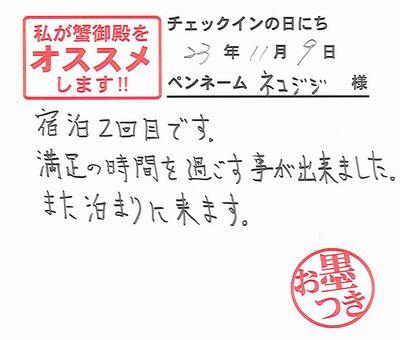 私が蟹御殿を
オススメ
します!!
チェックインの日にち
23年11月9日
ペンネーム ネコジジ 様
宿泊2回目です。
満足の時間を過ごす事が出来ました。
また泊まりに来ます。
お墨つき